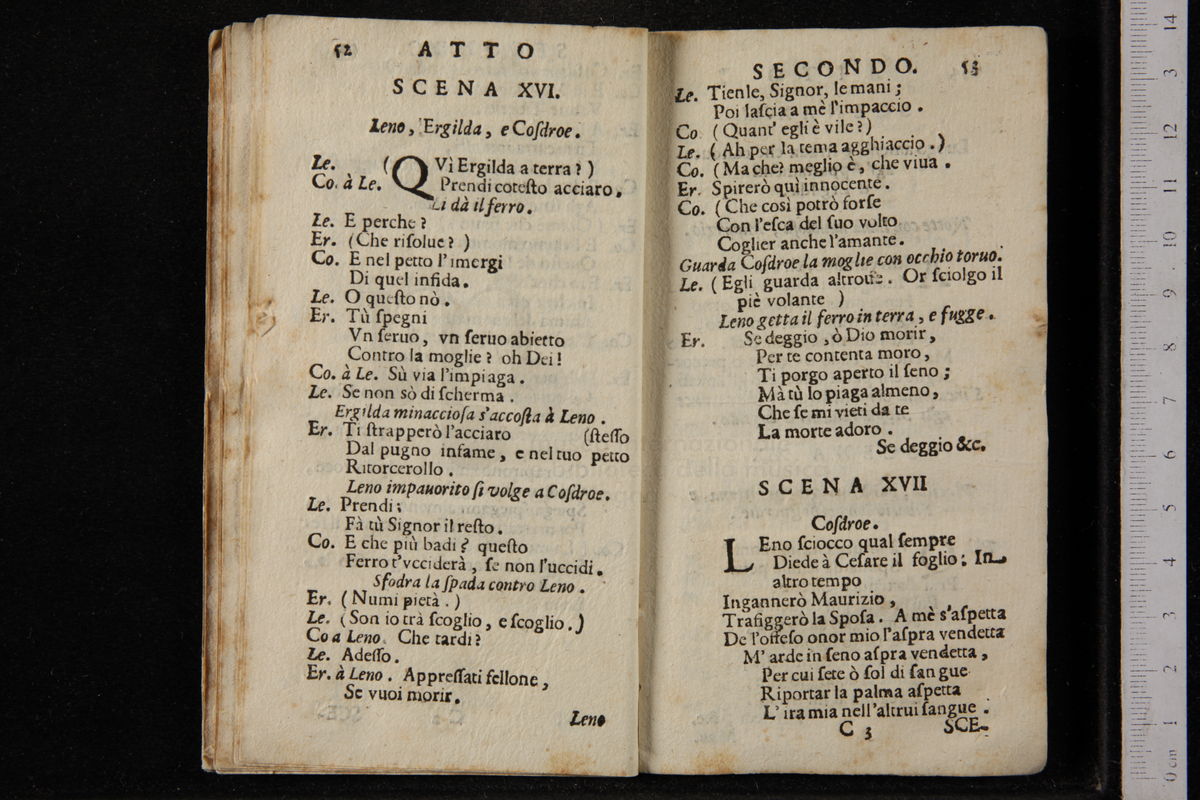 52 ATTO
SCENA XVI.
Leno, Ergilda, e Cosdroe.
Le. (QVì Ergilda a terra?)
Co. à Le. Prendi cotesto acciaro.
Li dà il ferro.
Le. E perche?
Er. (Che risolue?)
Co. E nel petto l'imergi
Di quel infida.
Le. O questo nò.
Er. Tù spegni
Vn seruo, vn seruo abietto
Contro la moglie? oh Dei!
Co. à Le. Sù via l'impiaga.
Le. Se non sò di scherma.
Ergilda minacciosa s'accosta à Leno.
Er. Ti strapperò l'acciaro (stesso
Dal pugno infame, e nel tuo petto
Ritorcerollo.
Leno impauorito si volge a Cosdroe.
Le. Prendi;
Fà tù Signor il resto.
Co. E che più badi? questo
Ferro t'vcciderà, se non l'uccidi.
Sfodra la spada contro Leno.
Er. (Numi pietà.)
Le. (Son io trà scoglio, e scoglio.)
Co a Leno. Che tardi?
Le. Adesso.
Er. à Leno. Appressati fellone,
Se vuoi morir.
Leno
SECONDO. 53
Le. Tienle, Signor, le mani;
Poi lascia a mè l'impaccio.
Co (Quant' egli è vile?)
Le. (Ah per la tema agghiaccio.)
Co. (Ma che? meglio è, che viua.
Er. Spirerò quì innocente.
Co. (Che così potrò forse
Con l'esca del suo volto
Coglier anche l'amante.
Guarda Cosdroe la moglie con occhio toruo.
Le. (Egli guarda altroue. Or sciolgo il
piè volante)
Leno getta il ferro in terra, e fugge.
Er. Se deggio, ò Dio morir,
Per te contenta moro,
Ti porgo aperto il seno;
Mà tù lo piaga almeno,
Che se mi vieti da te
La morte adoro.
Se deggio &c.
SCENA XVII
Cosdroe.
LEno sciocco qual sempre
Diede à Cesare il foglio: In
altro tempo
Ingannerò Maurizio,
Trafiggerò la Sposa. A mè s'aspetta
De l'offeso onor mio l'aspra vendetta
M' arde in seno aspra vendetta,
Per cui sete ò sol di sangue
Riportar la palma aspetta
L' ira mia nell'altrui sangue.
C 3 SCE-